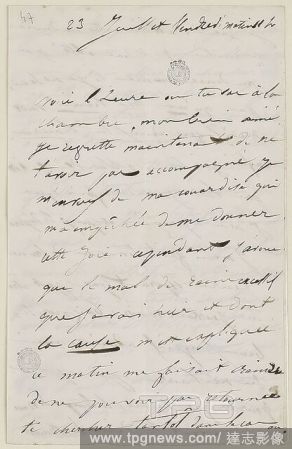 47
23 Juillet Vendredi matin 11 h
Voici l'heure où tu vas à la
chambre, mon bien aimé
Je regrette maintenant de ne
t'avoir pas accompagné, je
de ma couardise qui
m'a empêchée de me donner
cette joie. cependant j'avoue
que le mal de
que j'avais hier et dont
la cause m'est expliquée
ce matin me faisait craindre
de ne pouvoir pas retourner
te chercher tantôt dans
www.tpgnews.com / 達志影像
TPG